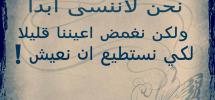 نحن لاننسى ابدا
ولكن نغمض اعيننا قليلا
لكي نستطيع ان نعيش !